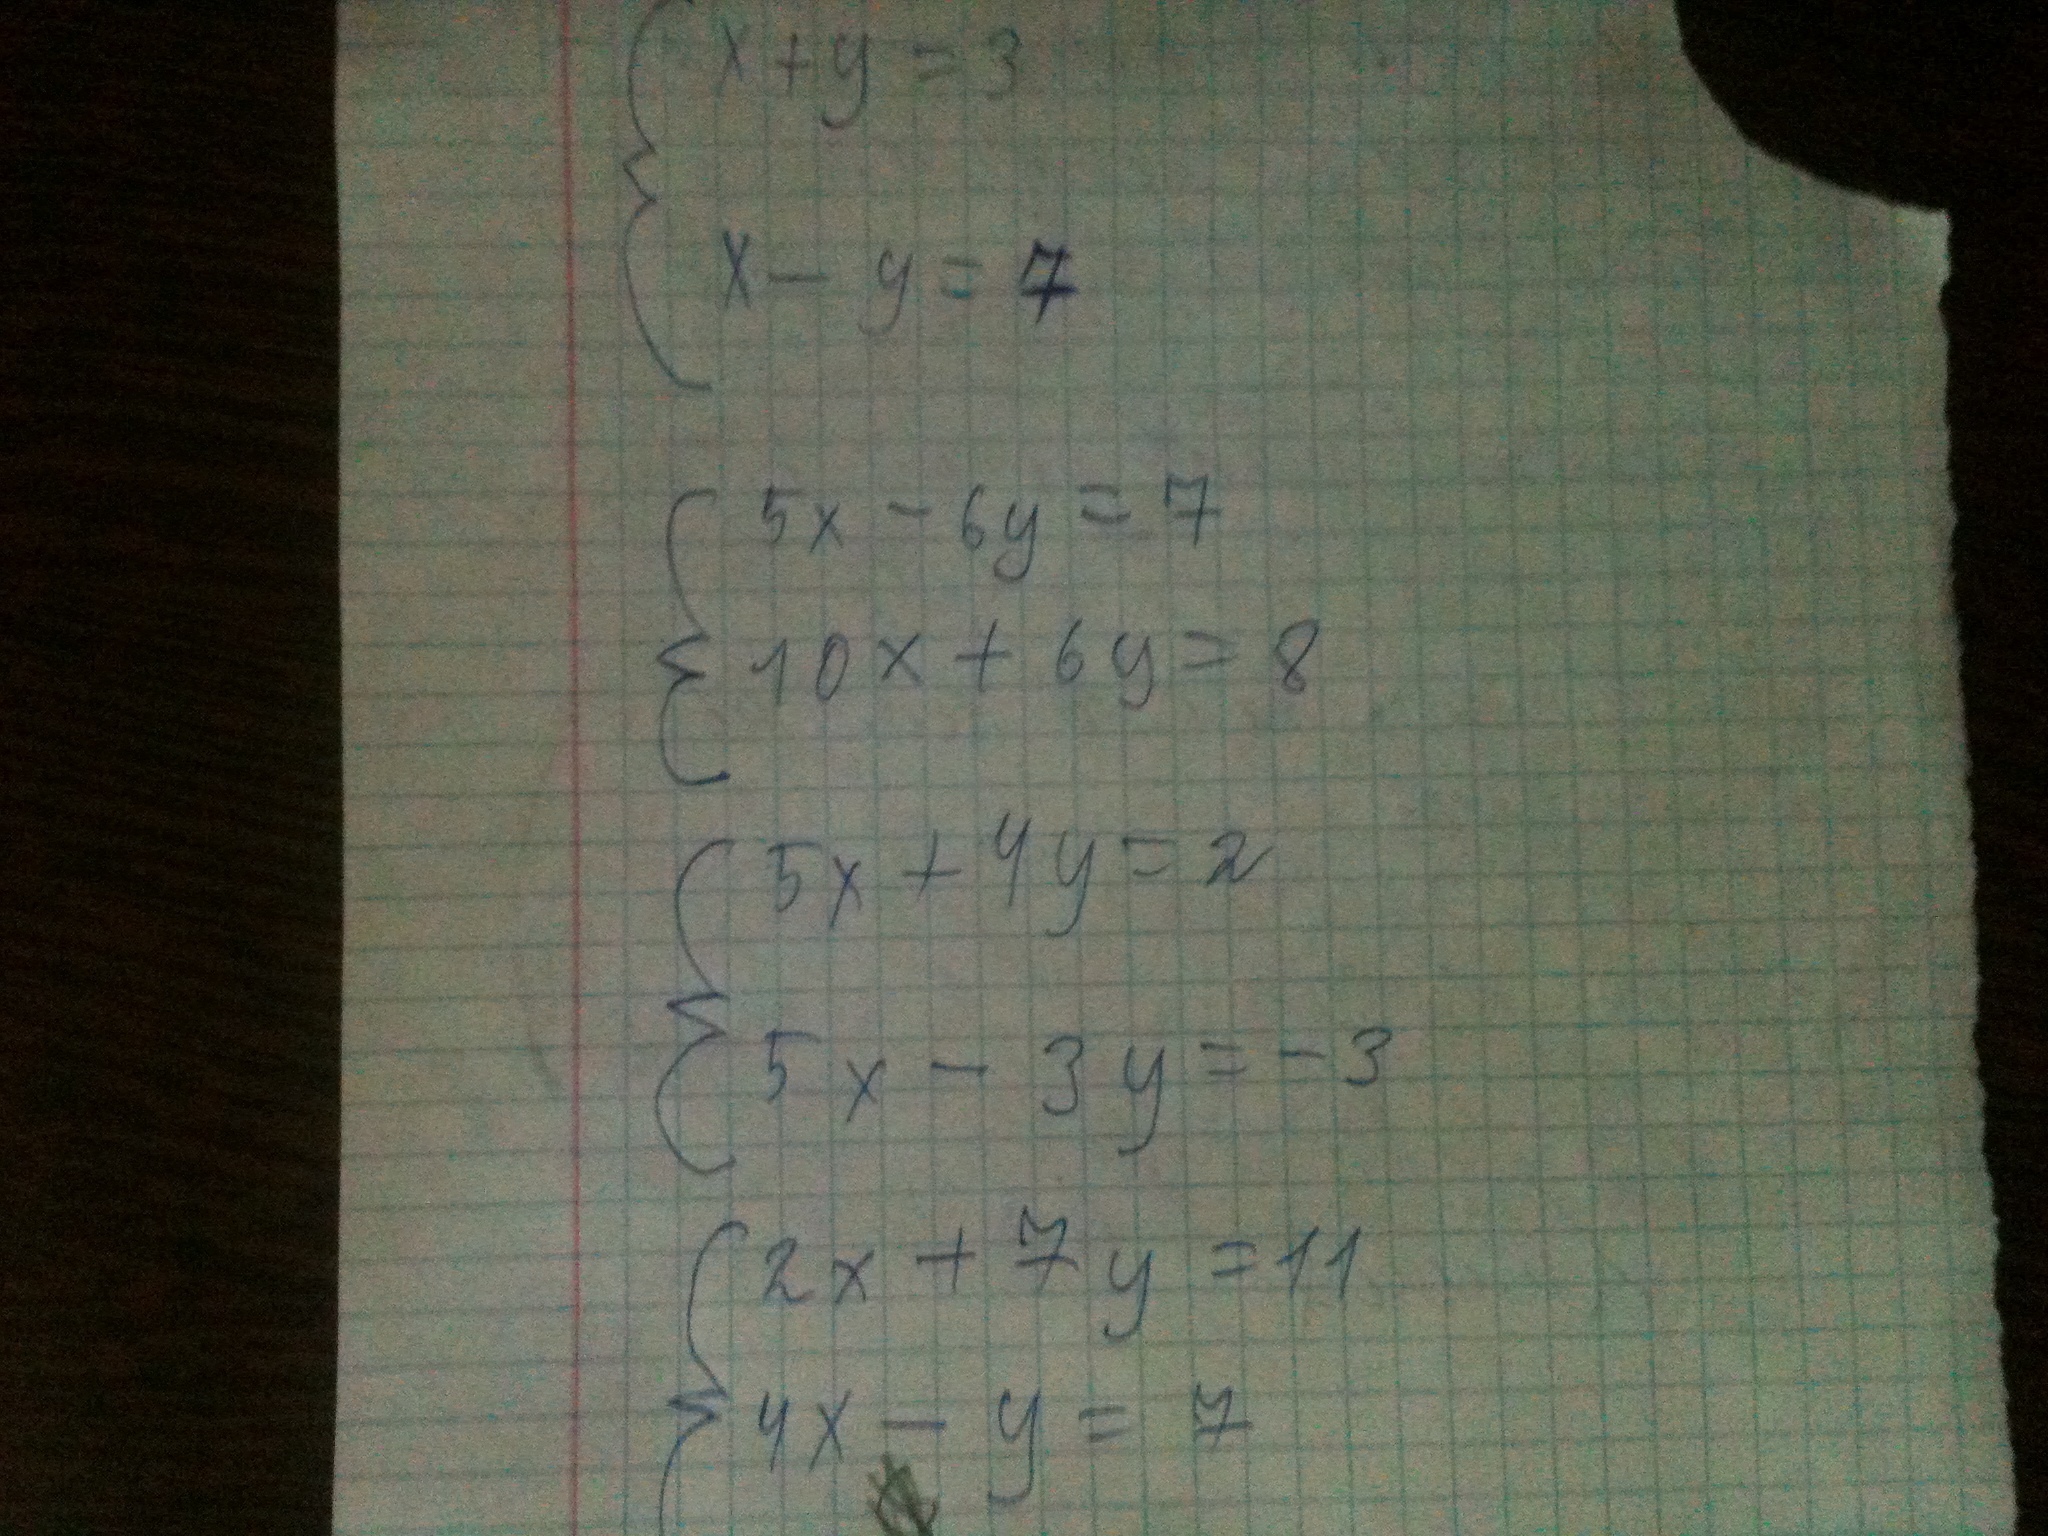 x + y = 3
x - y = 7
5x - 6y = 7
10x + 6y = 8
5x + 4y = 2
5x - 3y = -3
2x + 7y = 11
4x - y = 7